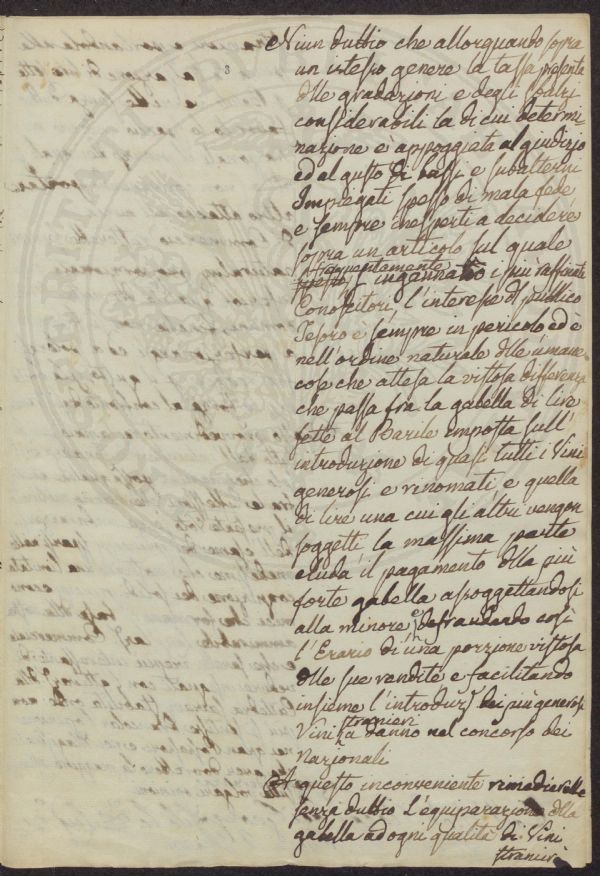 Niun dubbio che allorquando sopra
3
un istesso genere la tassa presenta
delle gradazioni e degli sbalzi
considerabili la di cui determi
nazione e appoggiata al giudizio
ed al gusto di bassi e subalterni
Impiegati spesso di mala fede
e sempre inesperti a decidere
sopra un articolo sul quale
frequentemente
s'ingannano i più raffinati
Conoscitori, l'interesse del pubblico
Tesoro è sempre in pericolo ed è
nell'ordine naturale delle umane
cose che attesa la vistosa differenza
che passa fra la gabella di lire
sette al Barile imposta sull'
introduzione di quasi tutti i Vini
generosi e rinomati, e quella
di lire una cui gli altri vengon
soggetti, la massima parte
eluda il pagamento della più
forte gabella assoggettandosi
alla minore, e defraudando così
l'Erario di una porzione vistosa
delle sue rendite e facilitando
insieme l'introduz.e dei più generosi
stranieri
Vini a danno nel concorso dei
Nazionali
A questo inconveniente rimedierebbe
senza dubbio l'equiparazione della
gabella ad ogni qualità di Vini
stranieri